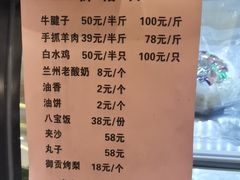 牛腱子 50元/半斤 100元/斤
手抓羊肉 39元/半斤 78元/斤
白水鸡 50元/半只 100元/只
兰州老酸奶 8元/个
油香 2元/个
油饼 2元/个
八宝饭 38元/份
夹沙 58元
丸子 58元
御贡烤梨 18元/个